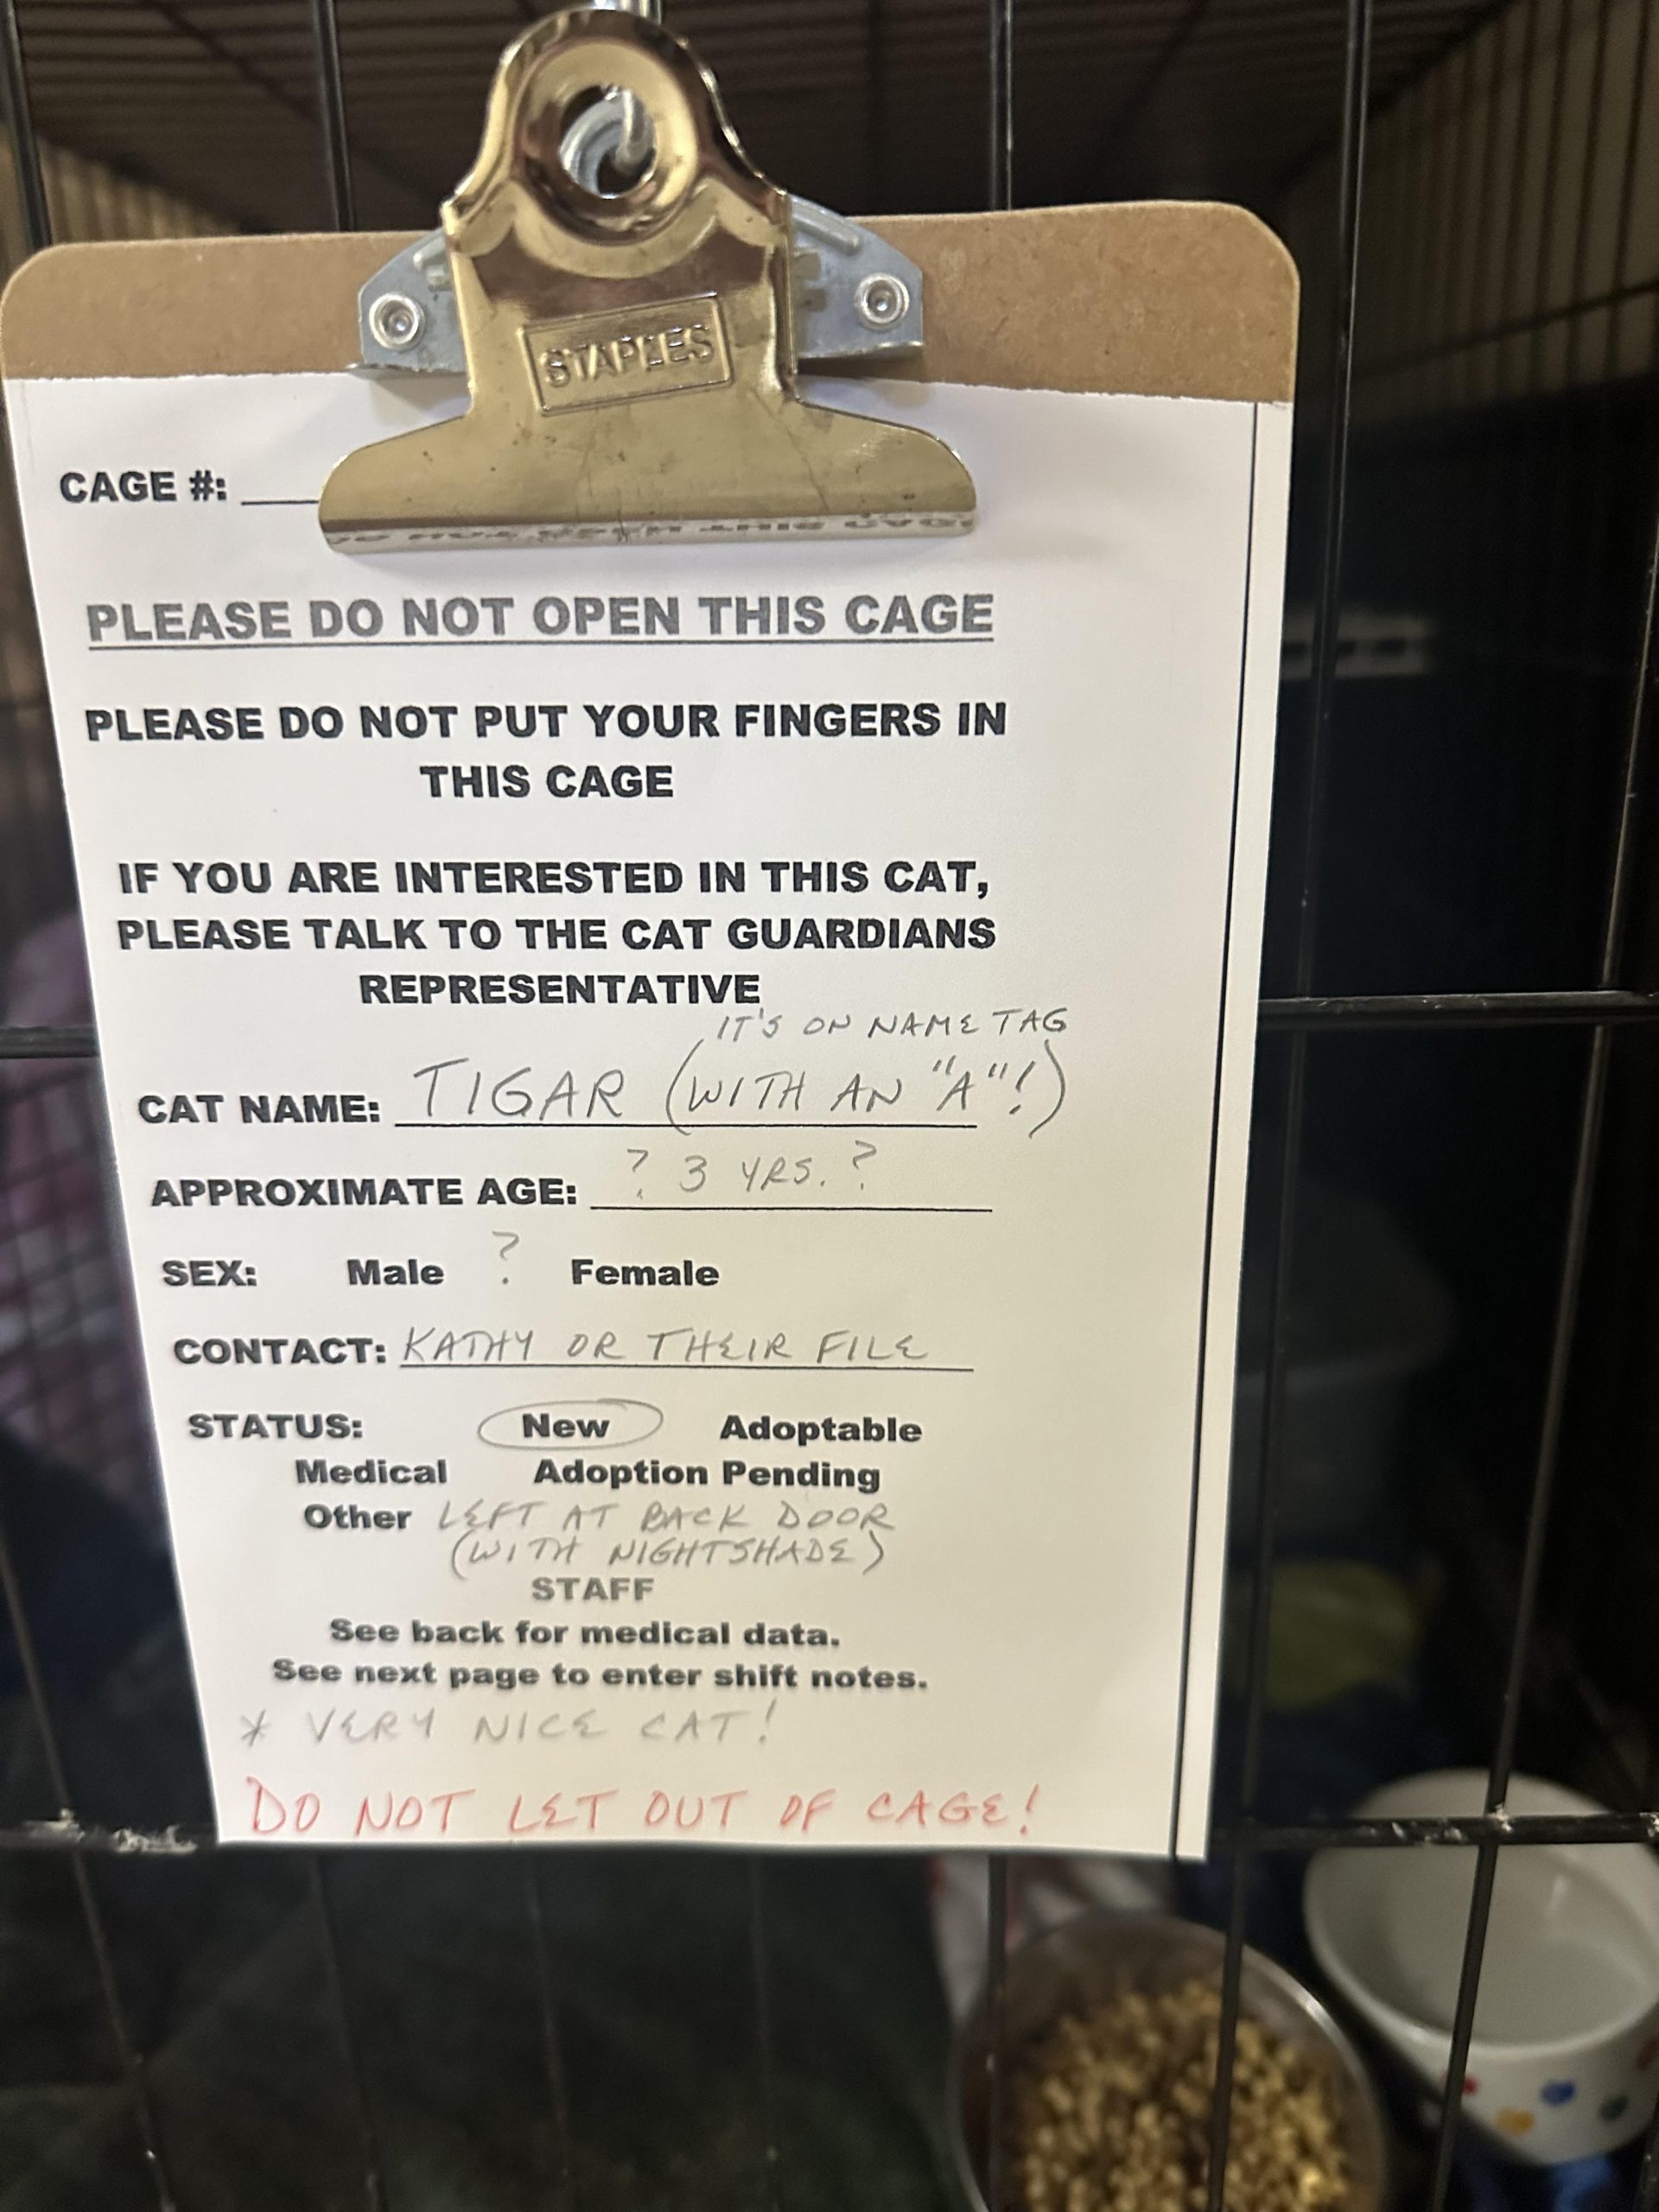 STAPLES
CAGE #:
PLEASE DO NOT OPEN THIS CAGE
PLEASE DO NOT PUT YOUR FINGERS IN
THIS CAGE
IF YOU ARE INTERESTED IN THIS CAT,
PLEASE TALK TO THE CAT GUARDIANS
REPRESENTATIVE
IT'S ON NAME TAG
CAT NAME: TIGAR (WITH AN "A"!)
APPROXIMATE AGE: ? 3 YRS. ?
SEX: Male ? Female
CONTACT: KATHY OR THEIR FILE
STATUS: New Adoptable
Medical Adoption Pending
Other LEFT AT BACK DOOR
(WITH NIGHTSHADE)
STAFF
See back for medical data.
See next page to enter shift notes.
* VERY NICE CAT!
DO NOT LET OUT OF CAGE!